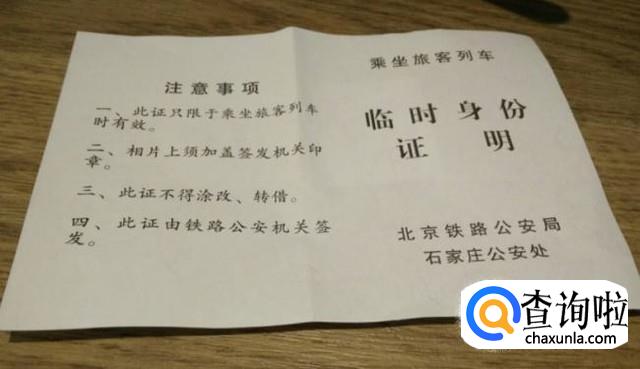 注意事项
一、此证只限于乘坐旅客列车
时有效。
二、相片上须加盖签发机关印
章。
三、此证不得涂改、转借。
四、此证由铁路公安机关签
发。
乘坐旅客列车
临时身份
证明
北京铁路公安局
石家庄公安处
查询啦
chaxunla.com